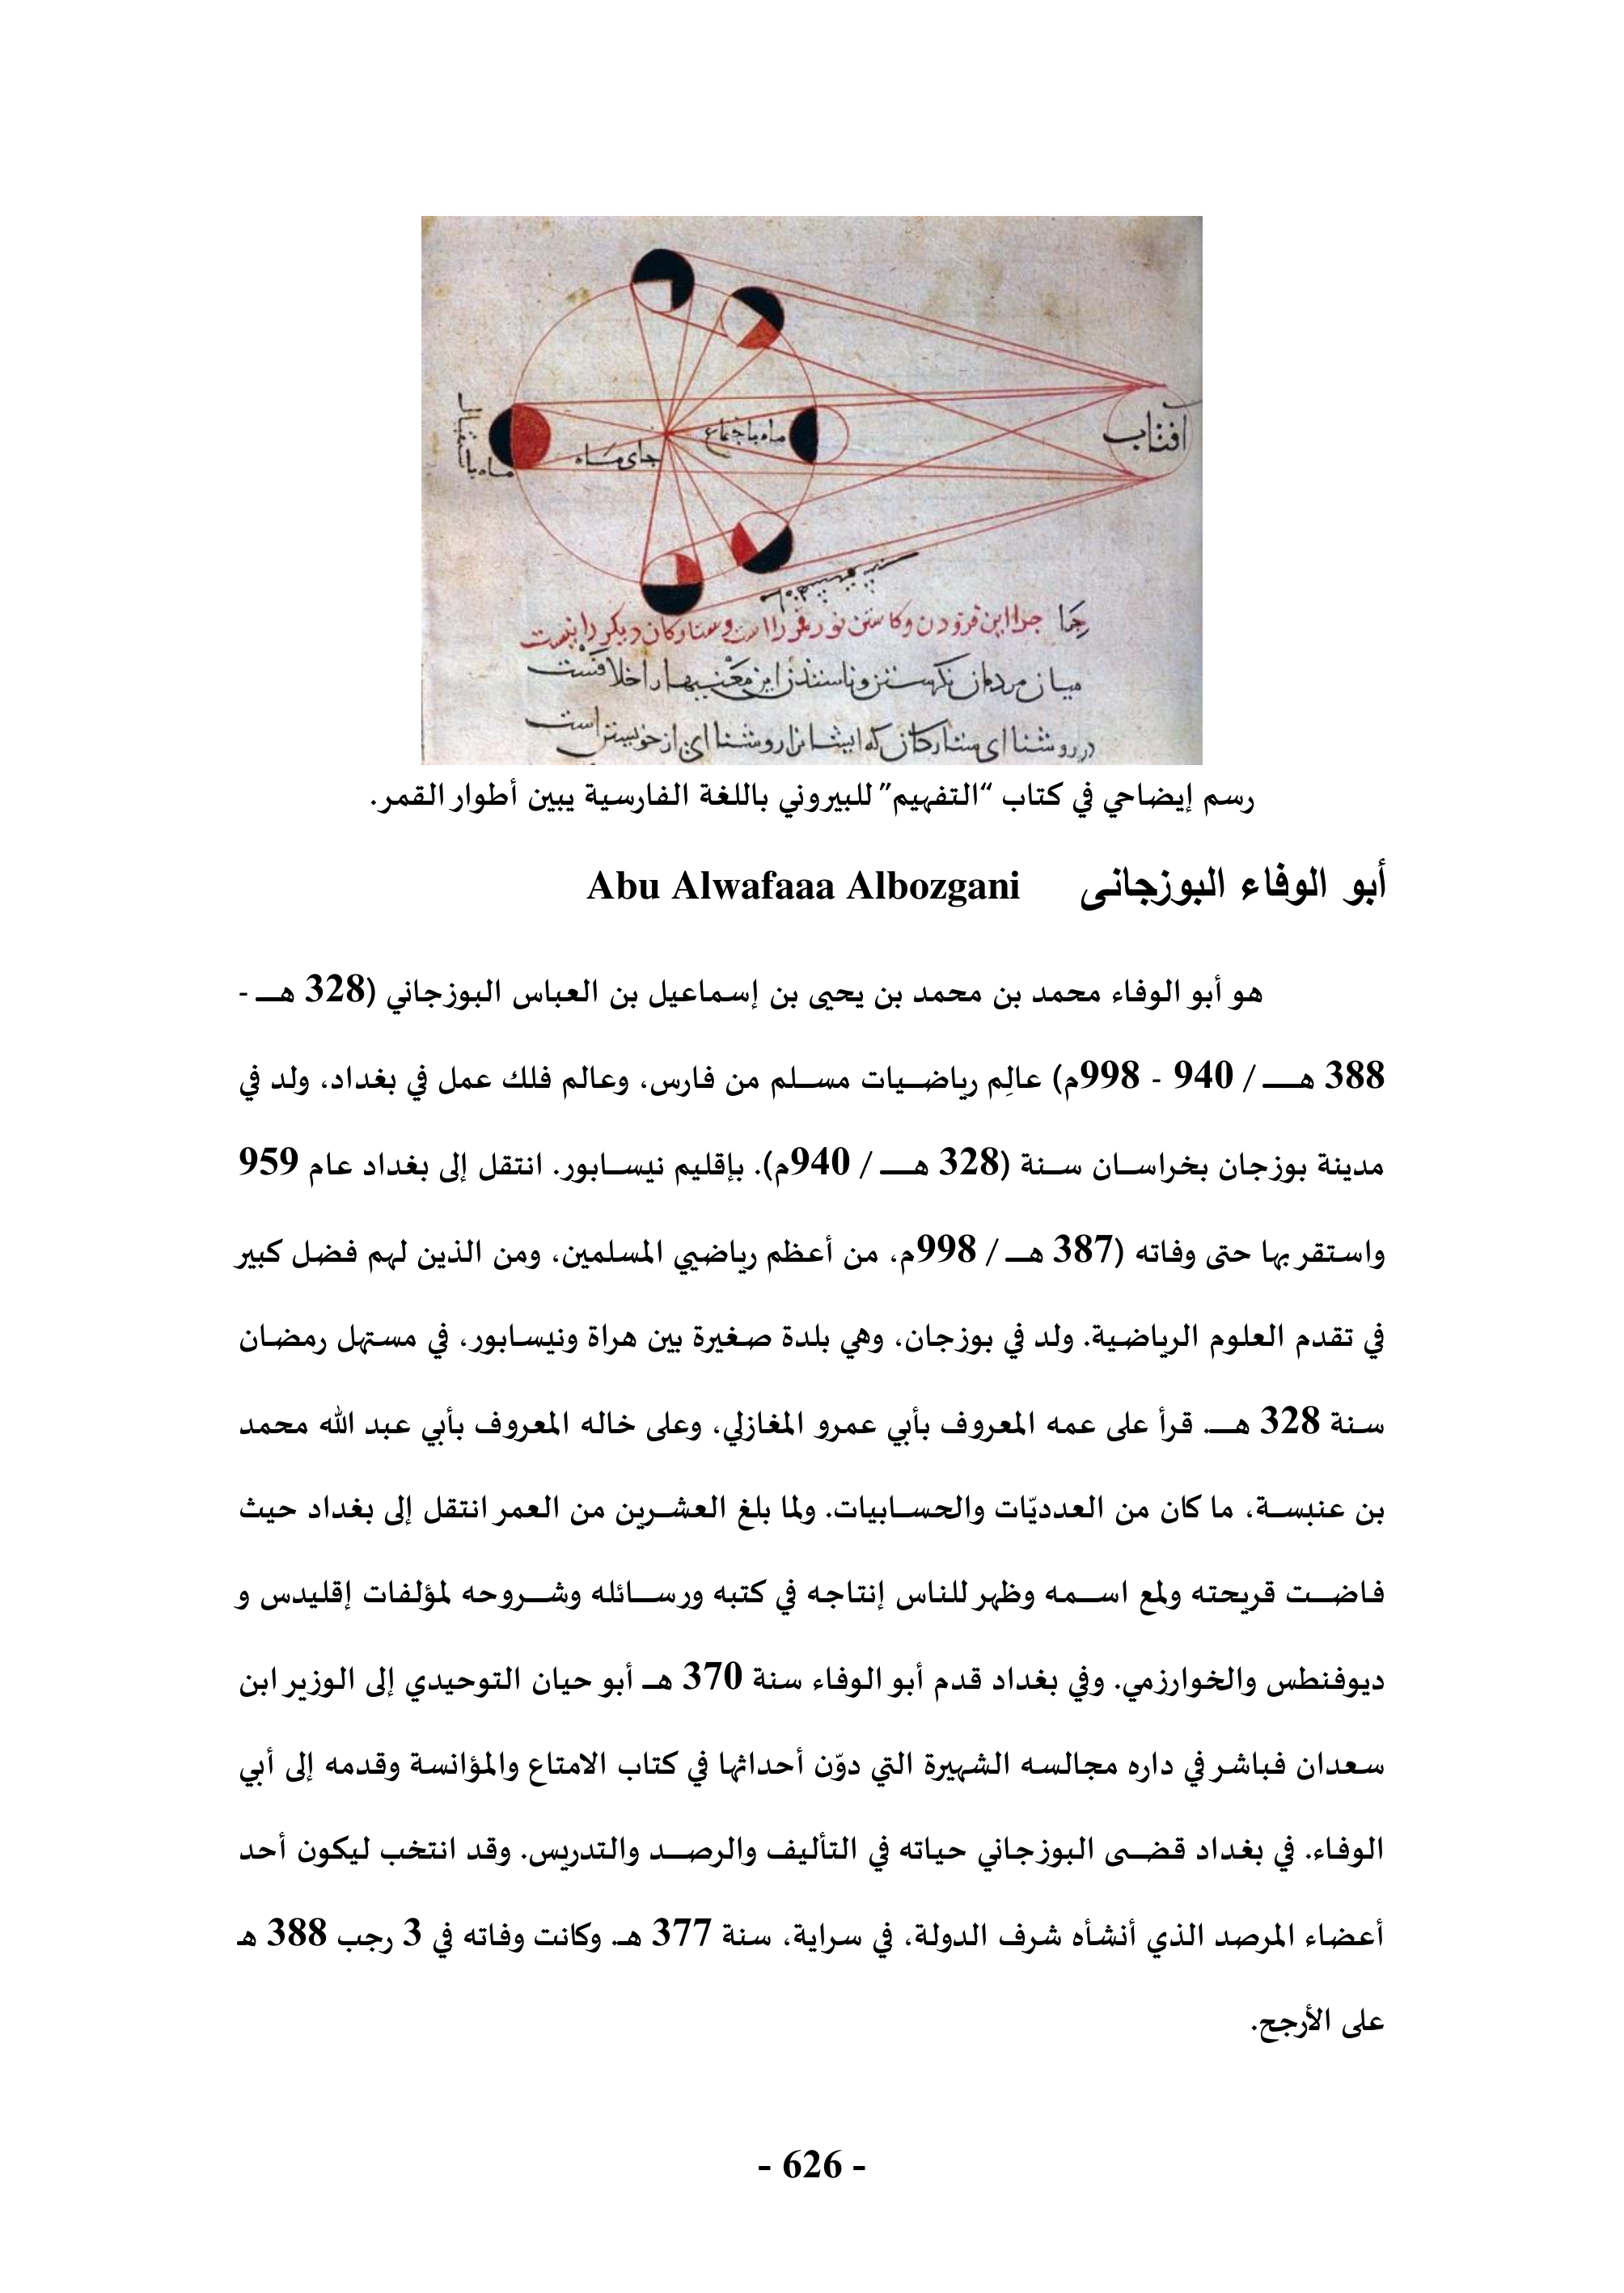 افتاب
ماه باجتماع
جای ماه
ماه باستقبال
چرا این فزودن وکاستن نور قمر راست وستارکان دیکر را نیست
میان مردمان نکرستن
در روشنا ای ستارکان که ایشانرا روشنا ای از خویشتن است
رسم إيضاحي في كتاب “التفهيم” للبيروني باللغة الفارسية يبين أطوار القمر.
أبو الوفاء البوزجانى Abu Alwafaaa Albozgani
هو أبو الوفاء محمد بن محمد بن يحيى بن إسماعيل بن العباس البوزجاني (328 هـ -
388 هـ / 940 - 998م) عالِم رياضيات مسلم من فارس، وعالم فلك عمل في بغداد، ولد في
مدينة بوزجان بخراسان سنة (328 هـ / 940م). بإقليم نيسابور. انتقل إلى بغداد عام 959
واستقر بها حتى وفاته (387 هـ / 998م، من أعظم رياضيي المسلمين، ومن الذين لهم فضل كبير
في تقدم العلوم الرياضية. ولد في بوزجان، وهي بلدة صغيرة بين هراة ونيسابور، في مستهل رمضان
سنة 328 هـ. قرأ على عمه المعروف بأبي عمرو المغازلي، وعلى خاله المعروف بأبي عبد الله محمد
بن عنبسة، ما كان من العدديّات والحسابيات. ولما بلغ العشرين من العمر انتقل إلى بغداد حيث
فاضت قريحته ولمع اسمه وظهر للناس إنتاجه في كتبه ورسائله وشروحه لمؤلفات إقليدس و
ديوفنطس والخوارزمي. وفي بغداد قدم أبو الوفاء سنة 370 هـ أبو حيان التوحيدي إلى الوزير ابن
سعدان فباشر في داره مجالسه الشهيرة التي دوّن أحداثها في كتاب الامتاع والمؤانسة وقدمه إلى أبي
الوفاء. في بغداد قضى البوزجاني حياته في التأليف والرصد والتدريس. وقد انتخب ليكون أحد
أعضاء المرصد الذي أنشأه شرف الدولة، في سراية، سنة 377 هـ. وكانت وفاته في 3 رجب 388 هـ
على الأرجح.
- 626 -